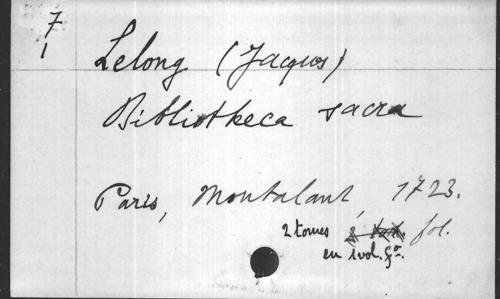 7
1
Lelong (Jacques)
Bibliotheca sacra
Paris, Montalant, 1723.
2 tomes fol.
en 1 vol. fo.